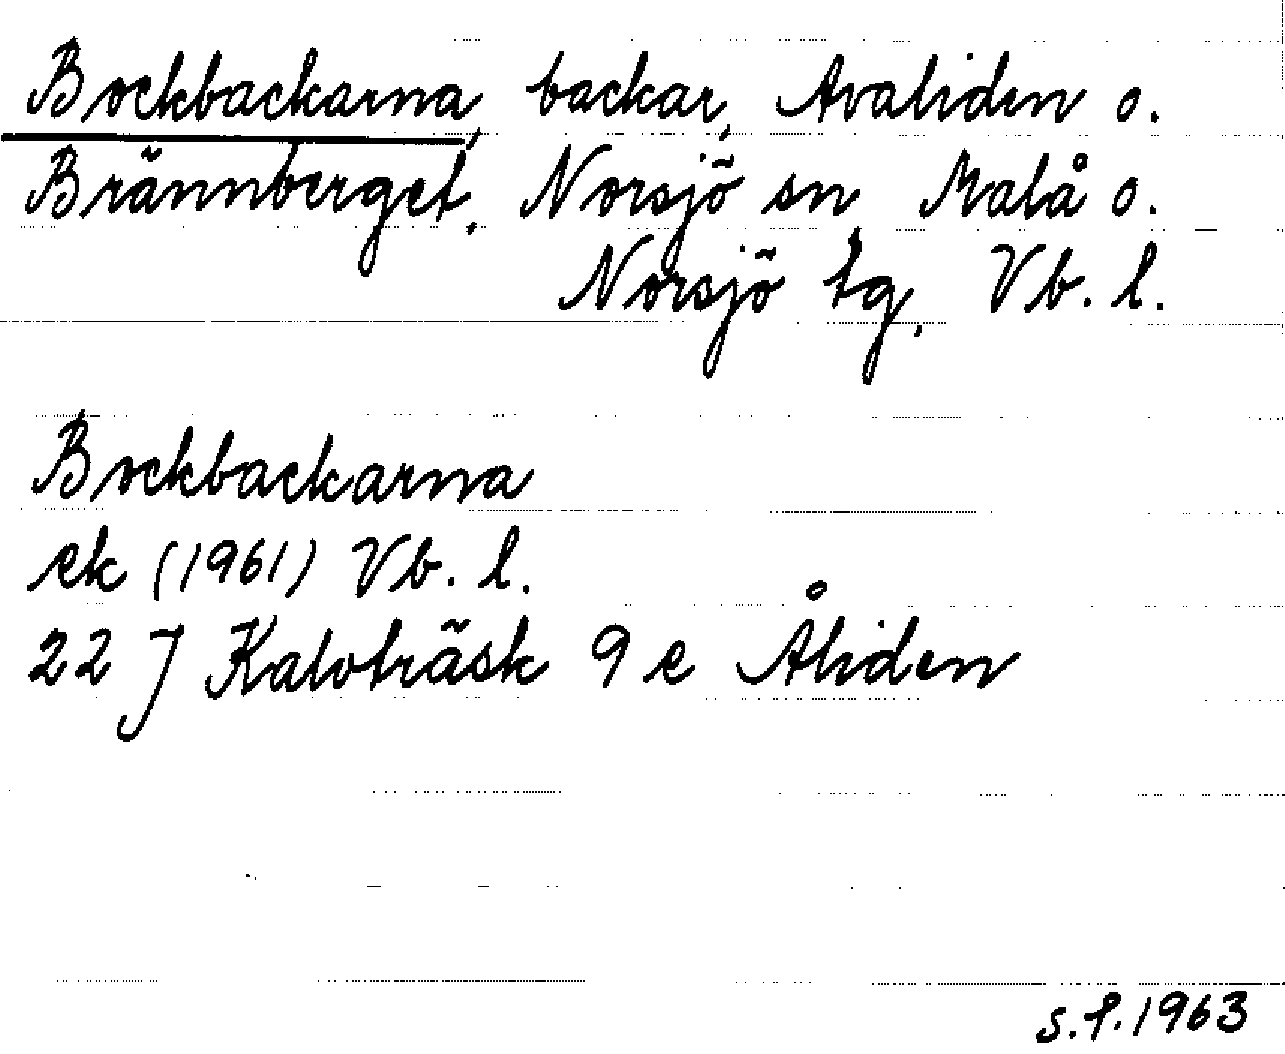 Bockbackarna, backar, Avaliden o.
Brännberget, Norsjö sn, Malå o.
Norsjö tg, Vb. l.
Bockbackarna
ek (1961) Vb. l.
22 J Kalvträsk 9 e Åliden
s.f. 1963